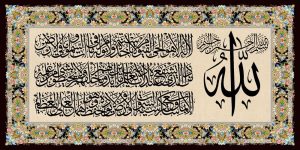 بسم الله الرحمن الرحيم
الله
لا إله إلا هو الحي القيوم لا تأخذه سنة ولا نوم له ما في السموات وما في الأرض
من ذا الذي يشفع عنده إلا بإذنه يعلم ما بين أيديهم وما خلفهم ولا يحيطون بشيء من علمه
إلا بما شاء وسع كرسيه السموات والأرض ولا يؤده حفظهما وهو العلي العظيم